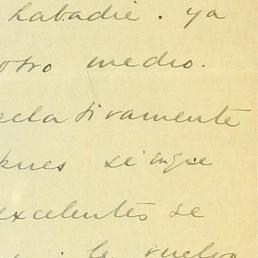 Labadie. ya
otro medio.
relativamente
pues sigue
excelentes se
le vuelvo